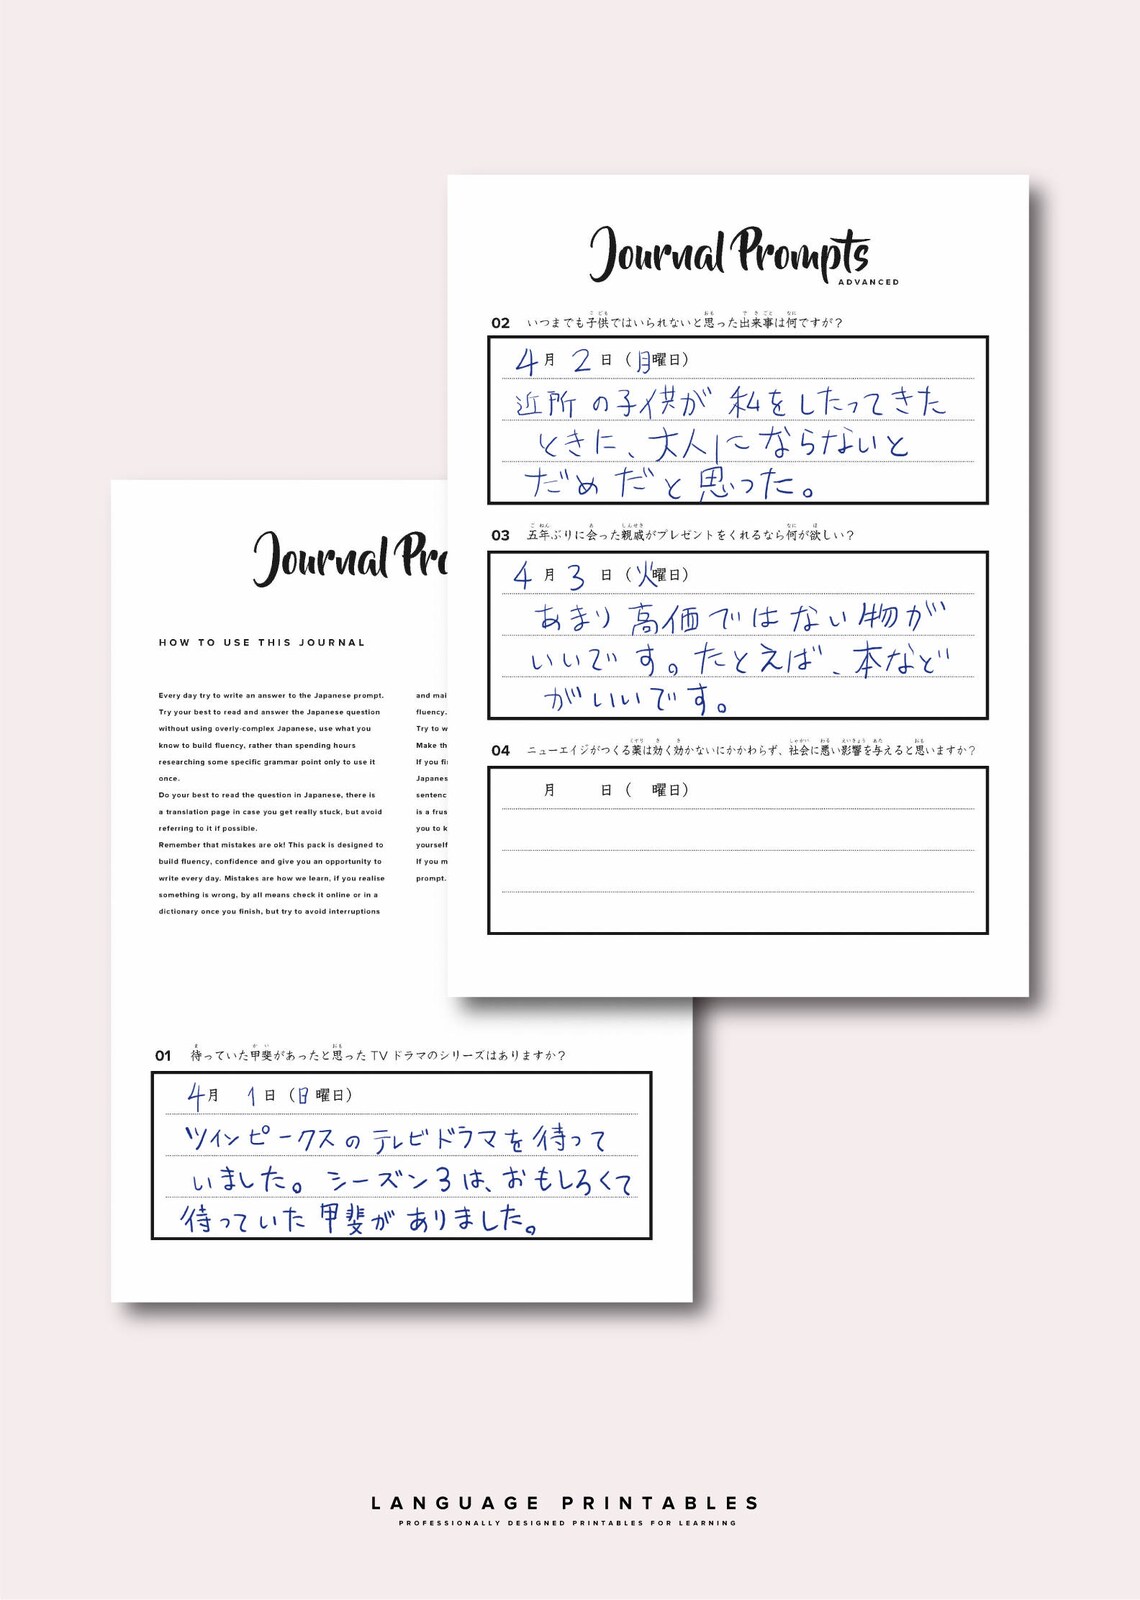 Journal Prompts
ADVANCED
02 いつまでも子供ではいられないと思った出来事は何ですが？
4月 2 日（月曜日）
近所の子供が私をしたってきた
ときに、大人にならないと
だめだと思った。
03 五年ぶりに会った親戚がプレゼントをくれるなら何が欲しい？
4月 3 日（火曜日）
あまり高価ではない物が
いいです。たとえば、本など
がいいです。
04 ニューエイジがつくる薬は効く効かないにかかわらず、社会に悪い影響を与えると思いますか？
月 日（ 曜日）
Journal Pro
HOW TO USE THIS JOURNAL
Every day try to write an answer to the Japanese prompt.
Try your best to read and answer the Japanese question
without using overly-complex Japanese, use what you
know to build fluency, rather than spending hours
researching some specific grammar point only to use it
once.
Do your best to read the question in Japanese, there is
a translation page in case you get really stuck, but avoid
referring to it if possible.
Remember that mistakes are ok! This pack is designed to
build fluency, confidence and give you an opportunity to
write every day. Mistakes are how we learn, if you realise
something is wrong, by all means check it online or in a
dictionary once you finish, but try to avoid interruptions
and mai
fluency.
Try to w
Make th
If you fi
Japanes
sentenc
is a frus
you to k
yourself
If you m
prompt.
01 待っていた甲斐があったと思った TV ドラマのシリーズはありますか？
4月 1日（日曜日）
ツインピークスのテレビドラマを待って
いました。シーズン3は、おもしろくて
待っていた甲斐がありました。
LANGUAGE PRINTABLES
PROFESSIONALLY DESIGNED PRINTABLES FOR LEARNING